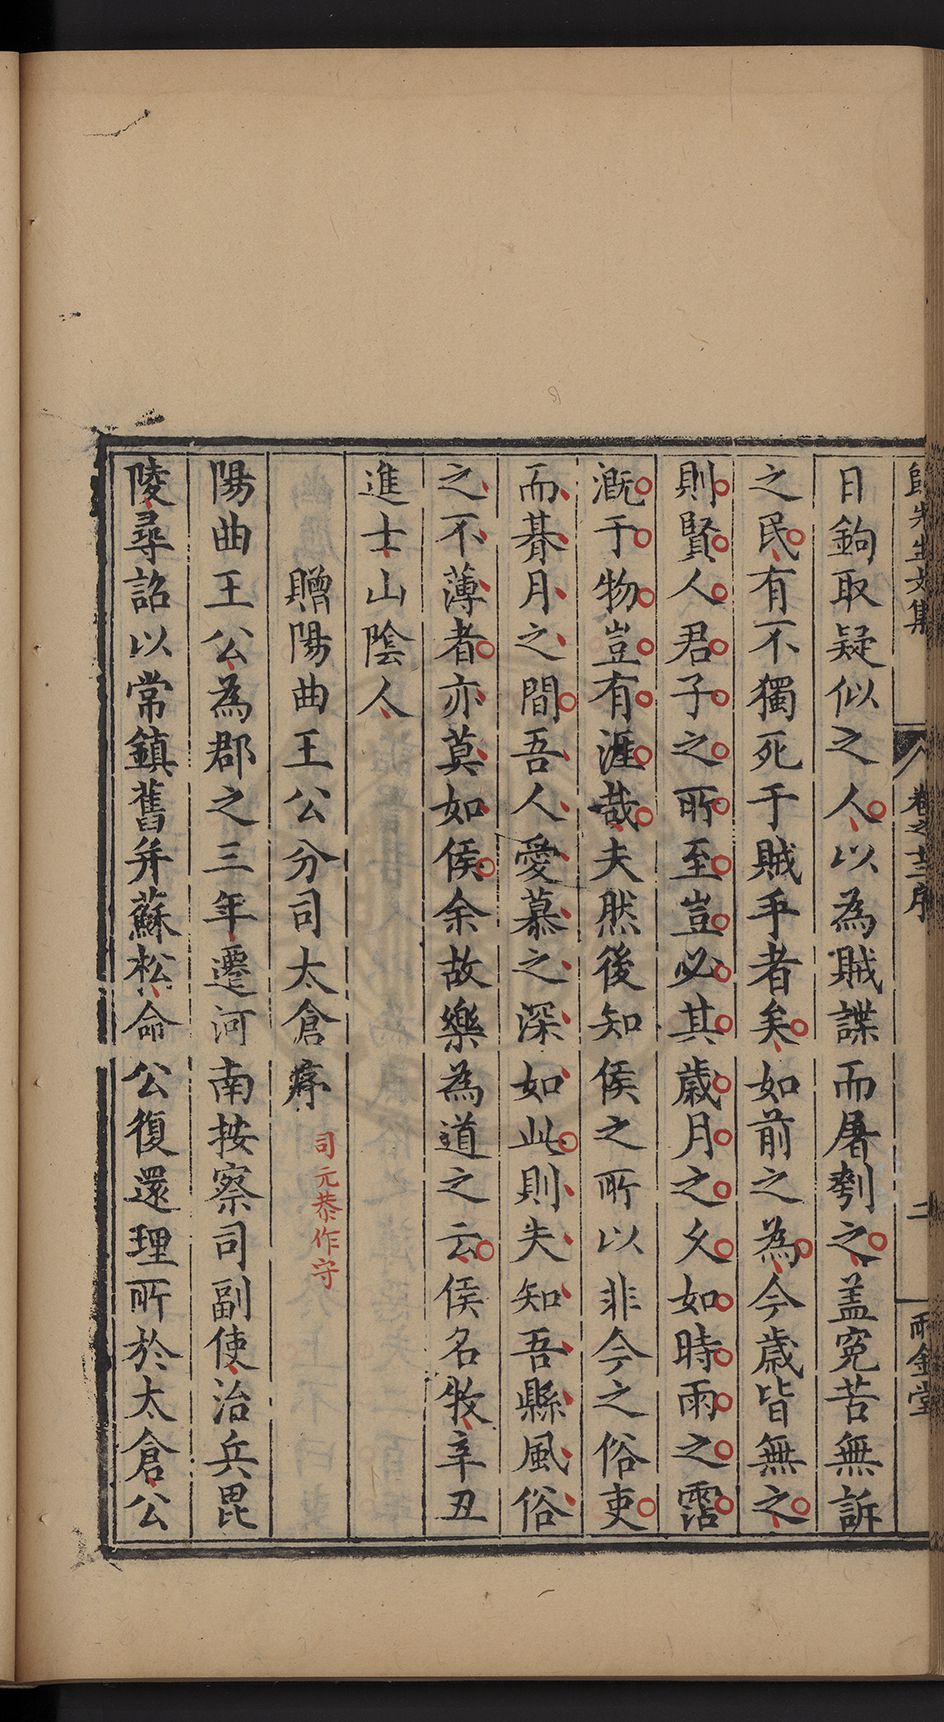 歸先生文集 卷之十三序 二 雨金堂
日鉤取疑似之人以為賊諜而屠刳之盖寃苦無訴
之民有不獨死于賊手者矣如前之為今歲皆無之
則賢人君子之所至豈必其歲月之久如時雨之霑
溉于物豈有涯哉夫然後知侯之所以非今之俗吏
而朞月之間吾人愛慕之深如此則夫知吾縣風俗
之不薄者亦莫如侯余故樂為道之云侯名牧辛丑
進士山陰人
贈陽曲王公分司太倉序
司元恭作守
陽曲王公為郡之三年遷河南按察司副使治兵毘
陵尋詔以常鎮舊并蘇松命公復還理所於太倉公